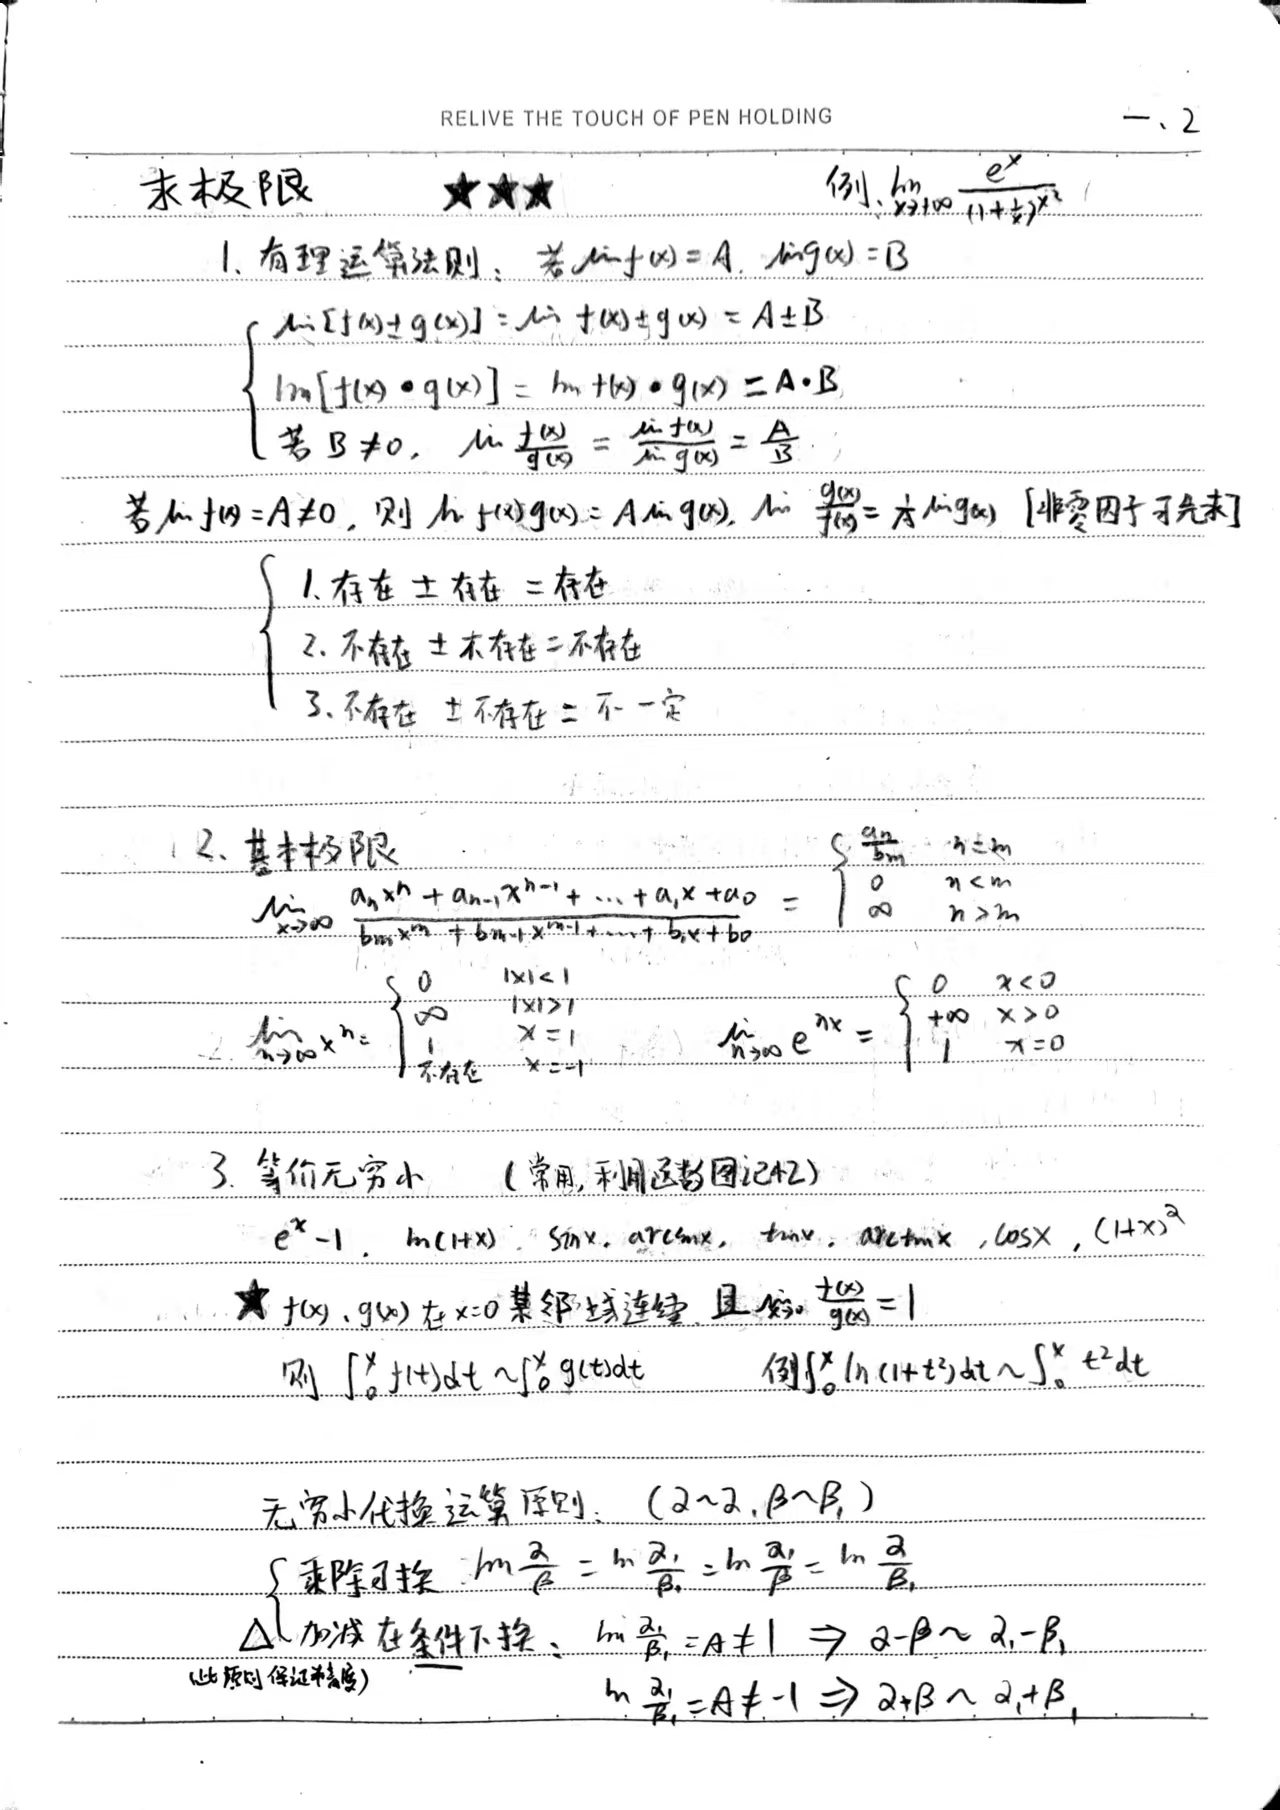 RELIVE THE TOUCH OF PEN HOLDING
一、2
求极限 ★★★ 例. lim x→+∞ e^x / (1+1/x)^{x²}
1、有理运算法则: 若 lim f(x) = A. lim g(x) = B
lim [f(x) ± g(x)] = lim f(x) ± g(x) = A ± B
lim [f(x) • g(x)] = lim f(x) • g(x) = A • B
若 B ≠ 0, lim f(x)/g(x) = lim f(x) / lim g(x) = A/B
若 lim f(x) = A ≠ 0, 则 lim f(x) g(x) = A lim g(x), lim g(x)/f(x) = 1/A lim g(x) [非零因子可先求]
1、存在 ± 存在 = 存在
2、不存在 ± 存在 = 不存在
3、不存在 ± 不存在 = 不一定
2、基本极限
lim x→∞ (a_n x^n + a_{n-1} x^{n-1} + … + a_1 x + a_0) / (b_m x^m + b_{m-1} x^{m-1} + … + b_1 x + b_0) = { a_n/b_m n = m
0 n < m
∞ n > m
lim n→∞ x^n = { 0 |x| < 1
∞ |x| > 1
1 x = 1
不存在 x = -1
lim n→∞ e^{nx} = { 0 x < 0
+∞ x > 0
1 x = 0
3. 等价无穷小 (常用, 利用函数图记忆)
e^x - 1, ln(1+x), sinx, arcsinx, tanx, arctanx, cosx, (1+x)^α
★ f(x)、g(x) 在 x=0 某邻域连续, 且 lim x→0 f(x)/g(x) = 1
则 ∫_0^x f(t)dt ~ ∫_0^x g(t)dt 例 ∫_0^x ln(1+t²)dt ~ ∫_0^x t²dt
无穷小代换运算原则: (α~α, β~β₁)
乘除可换 lim α/β = lim α₁/β₁ = lim α₁/β = lim α/β₁
△ 加减在条件下换: lim α₁/β₁ = A ≠ 1 ⇒ α-β ~ α₁-β₁
(此原则保证精度)
lim α₁/β₁ = A ≠ -1 ⇒ α+β ~ α₁+β₁